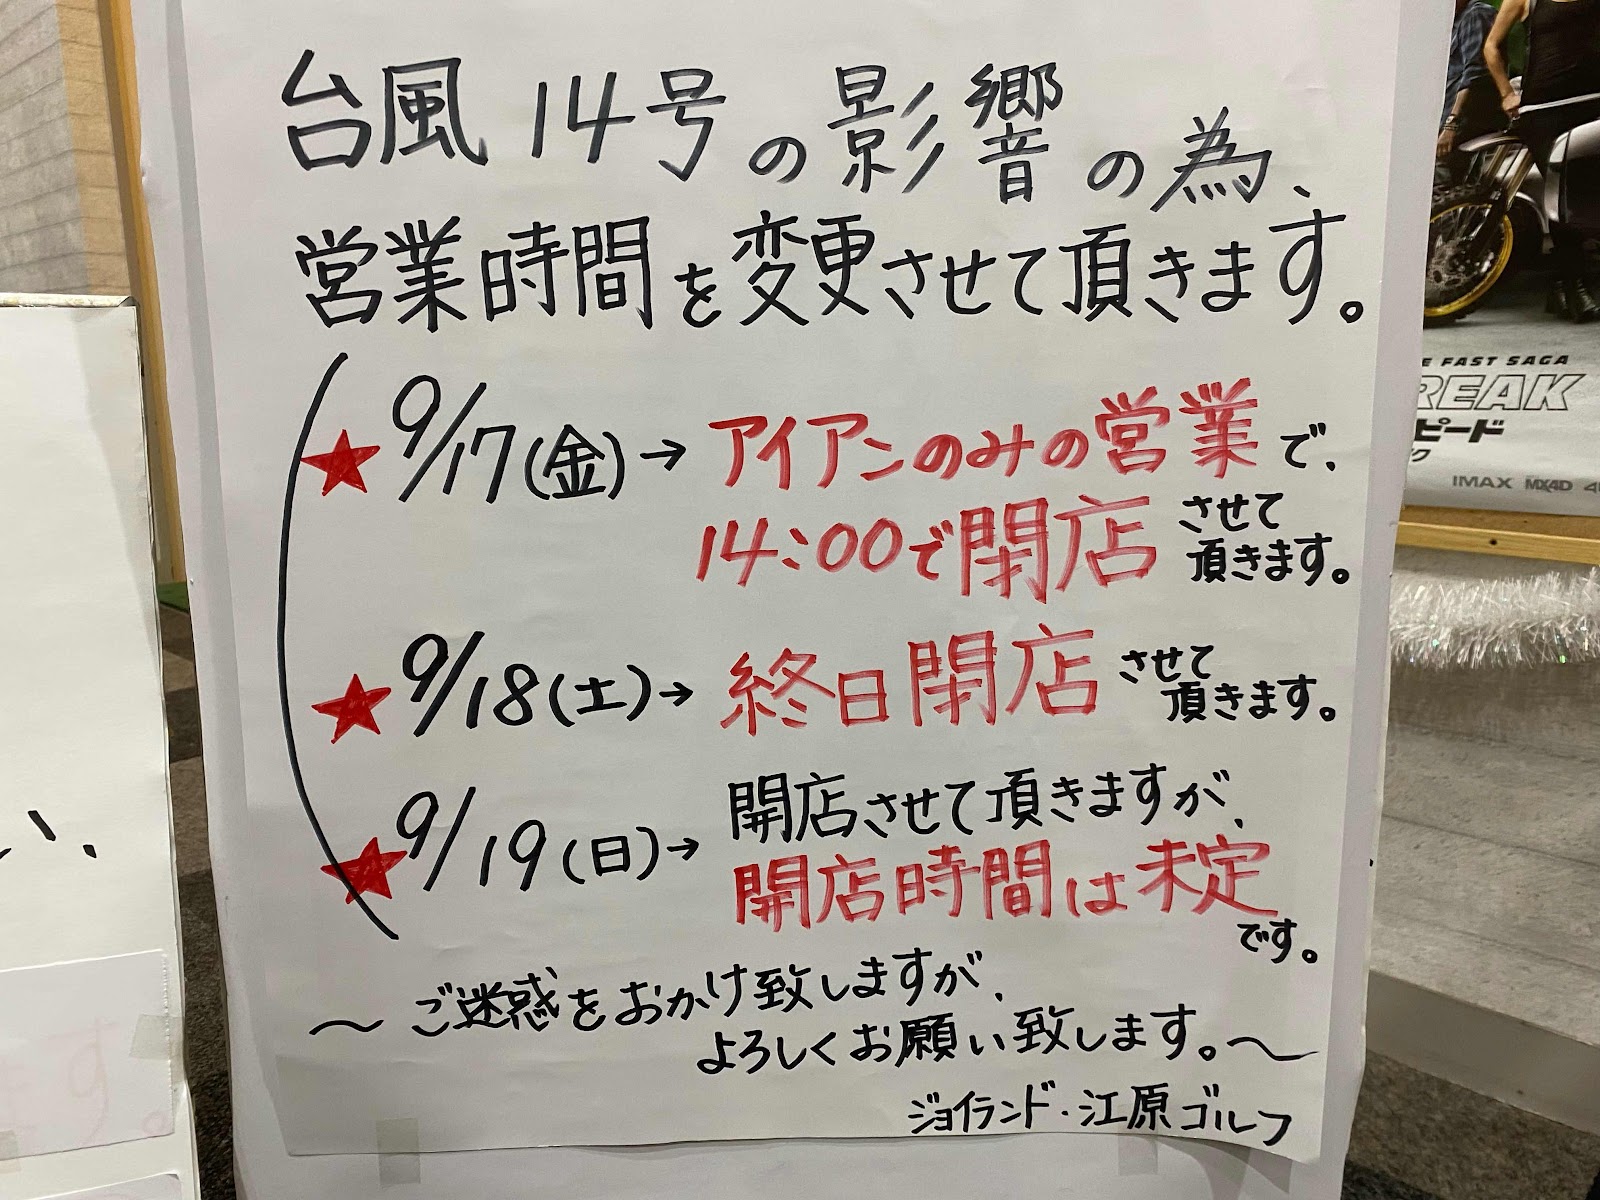 台風14号の影響の為、
営業時間を変更させて頂きます。
★9/17(金)→アイアンのみの営業で、
14:00で閉店させて頂きます。
★9/18(土)→終日閉店させて頂きます。
★9/19(日)→開店させて頂きますが、
開店時間は未定です。
～ご迷惑をおかけ致しますが、
よろしくお願い致します。～
ジョイランド・江原ゴルフ
E FAST SAGA
REAK
ピード
ク
IMAX MX4D
い、
す。